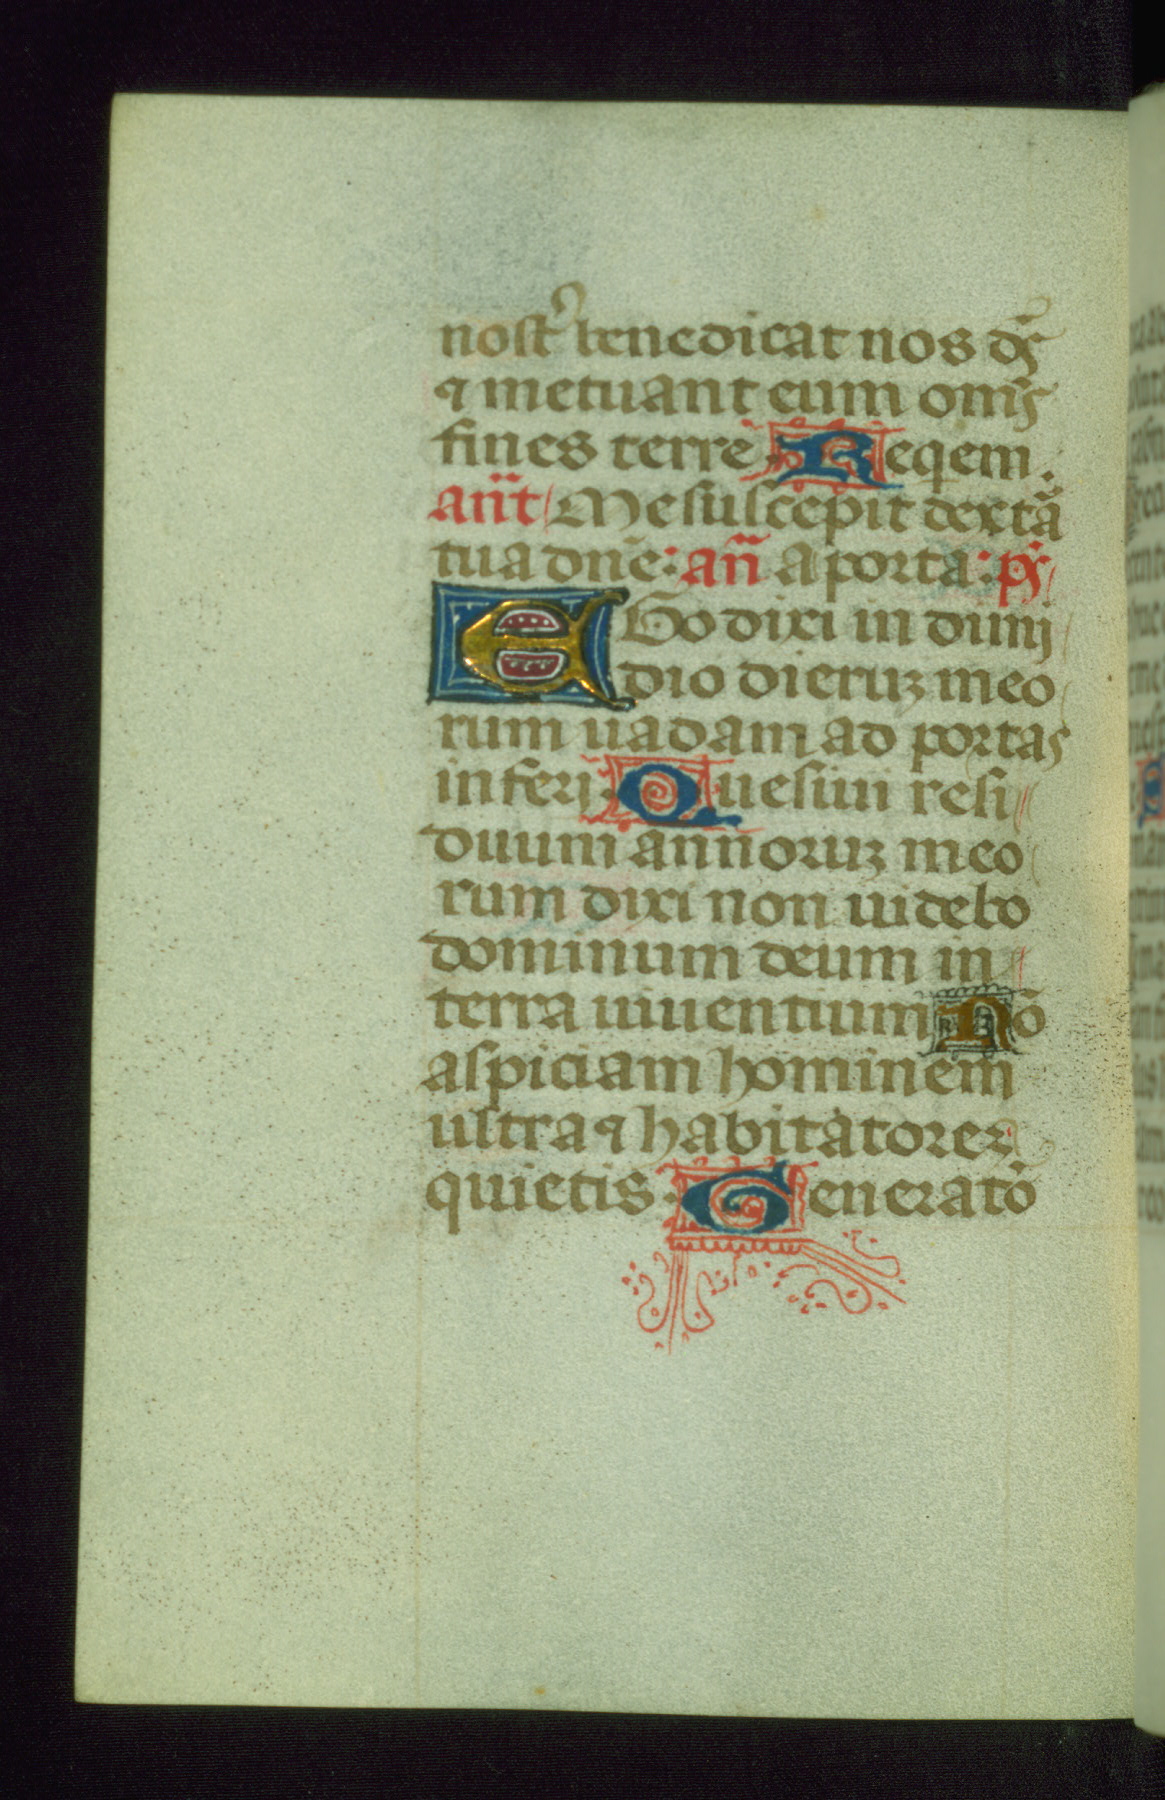 nostꝰ benedicat nos dꝰs̄
⁊ metuant eum om̄s
fines terre. Reqem.
an̄t Me suscepit dext̄a
tua dn̄e: an̄ A porta: ps̄
EGo dixi in dimi
dio dieruꝫ meo
rum uadam ad portas
inferi. Quesiui resi
duum annoruꝫ meo
rum dixi non uidebo
dominum deum in
terra uiuentium Nō
aspiciam hominem
ultra ⁊ habitatorez
quietis. Generatō